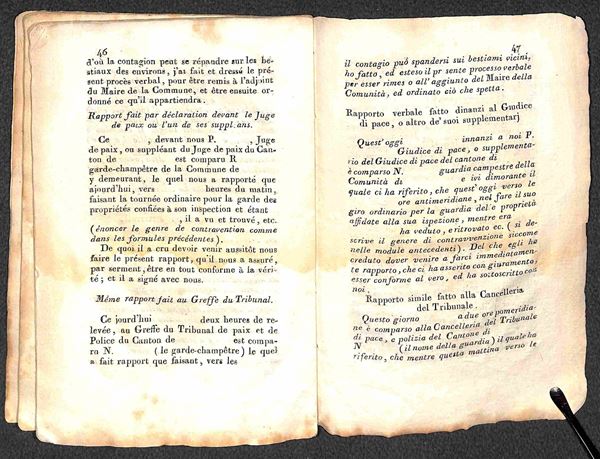 46
d'où la contagion peut se répandre sur les bes-
tiaux des environs, j'ai fait et dressé le pré-
sent procès verbal, pour être remis à l'adjoint
du Maire de la Commune, et être ensuite or-
donné ce qu'il appartiendra.
Rapport fait par déclaration devant le Juge
de paix ou l'un de ses suppl.ans.
Ce , devant nous P. , Juge
de paix, ou suppléant du Juge de paix du Can-
ton de est comparu R
garde-champêtre de la Commune de
y demeurant, le quel nous a rapporté que
ajourd'hui, vers heures du matin,
faisant la tournée ordinaire pour la garde des
propriétés confiées à son inspection et étant
, il a vu et trouvé, etc.
(énoncer le genre de contravention comme
dans les formules précédentes).
De quoi il a cru devoir venir aussitôt nous
faire le présent rapport, qu'il nous a assuré,
par serment, être en tout conforme à la véri-
té; et il a signé avec nous.
Même rapport fait au Greffe du Tribunal.
Ce jourd'hui deux heures de re-
levée, au Greffe du Tribunal de paix et de
Police du Canton de est compa-
ru N. (le garde-champêtre) le quel
a fait rapport que faisant, vers les
47
il contagio può spandersi sui bestiami vicini,
ho fatto, ed esteso il pr sente processo verbale
per esser rimes o all'aggiunto del Maire della
Comunità, ed ordinato ciò che spetta.
Rapporto verbale fatto dinanzi al Giudice
di pace, o altro de' suoi supplementarj
Quest'oggi innanzi a noi P.
Giudice di pace, o supplementa-
rio del Giudice di pace del cantone di
è comparso N. guardia campestre della
Comunità di e ivi dimorante il
quale ci ha riferito, che quest'oggi verso le
ore antimeridiane, nel fare il suo
giro ordinario per la guardia del e proprietà
affidate alla sua ispezione, mentre era
ha veduto, e ritrovato ec. (si de-
scrive il genere di contravvenzione siccome
nelle module antecedenti). Del che egli ha
creduto dover venire a farci immediatamen-
te rapporto, che ci ha asserito con giuramento,
esser conforme al vero, ed ha sottoscritto con
noi.
Rapporto simile fatto alla Cancelleria
del Tribunale.
Questo giorno a due ore pomeridia-
ne è comparso alla Cancelleria del Tribunale
di pace, e polizia del Cantone di
N (il nome della guardia) il quale ha
riferito, che mentre questa mattina verso le